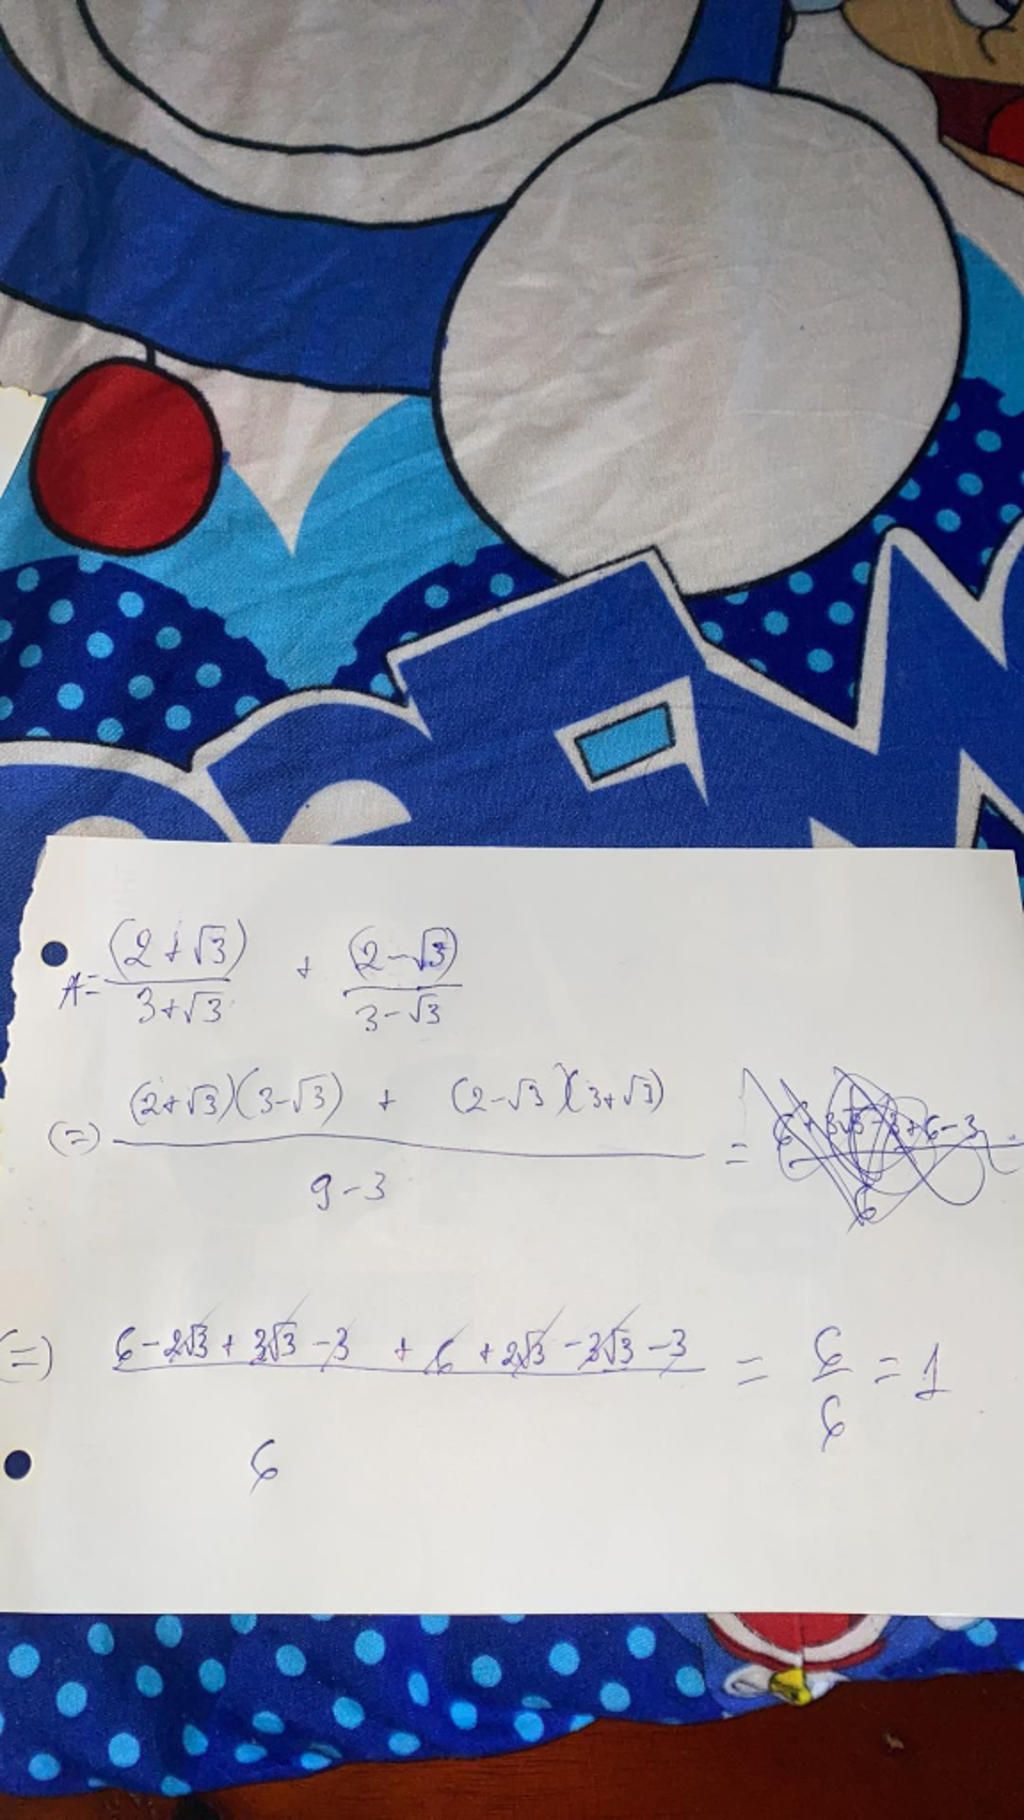 A = (2+√3)/(3+√3) + (2-√3)/(3-√3)
(=) ((2+√3)(3-√3) + (2-√3)(3+√3))/(9-3) =
(=) (6-2√3+3√3-3 + 6+2√3-3√3-3)/6 = 6/6 = 1